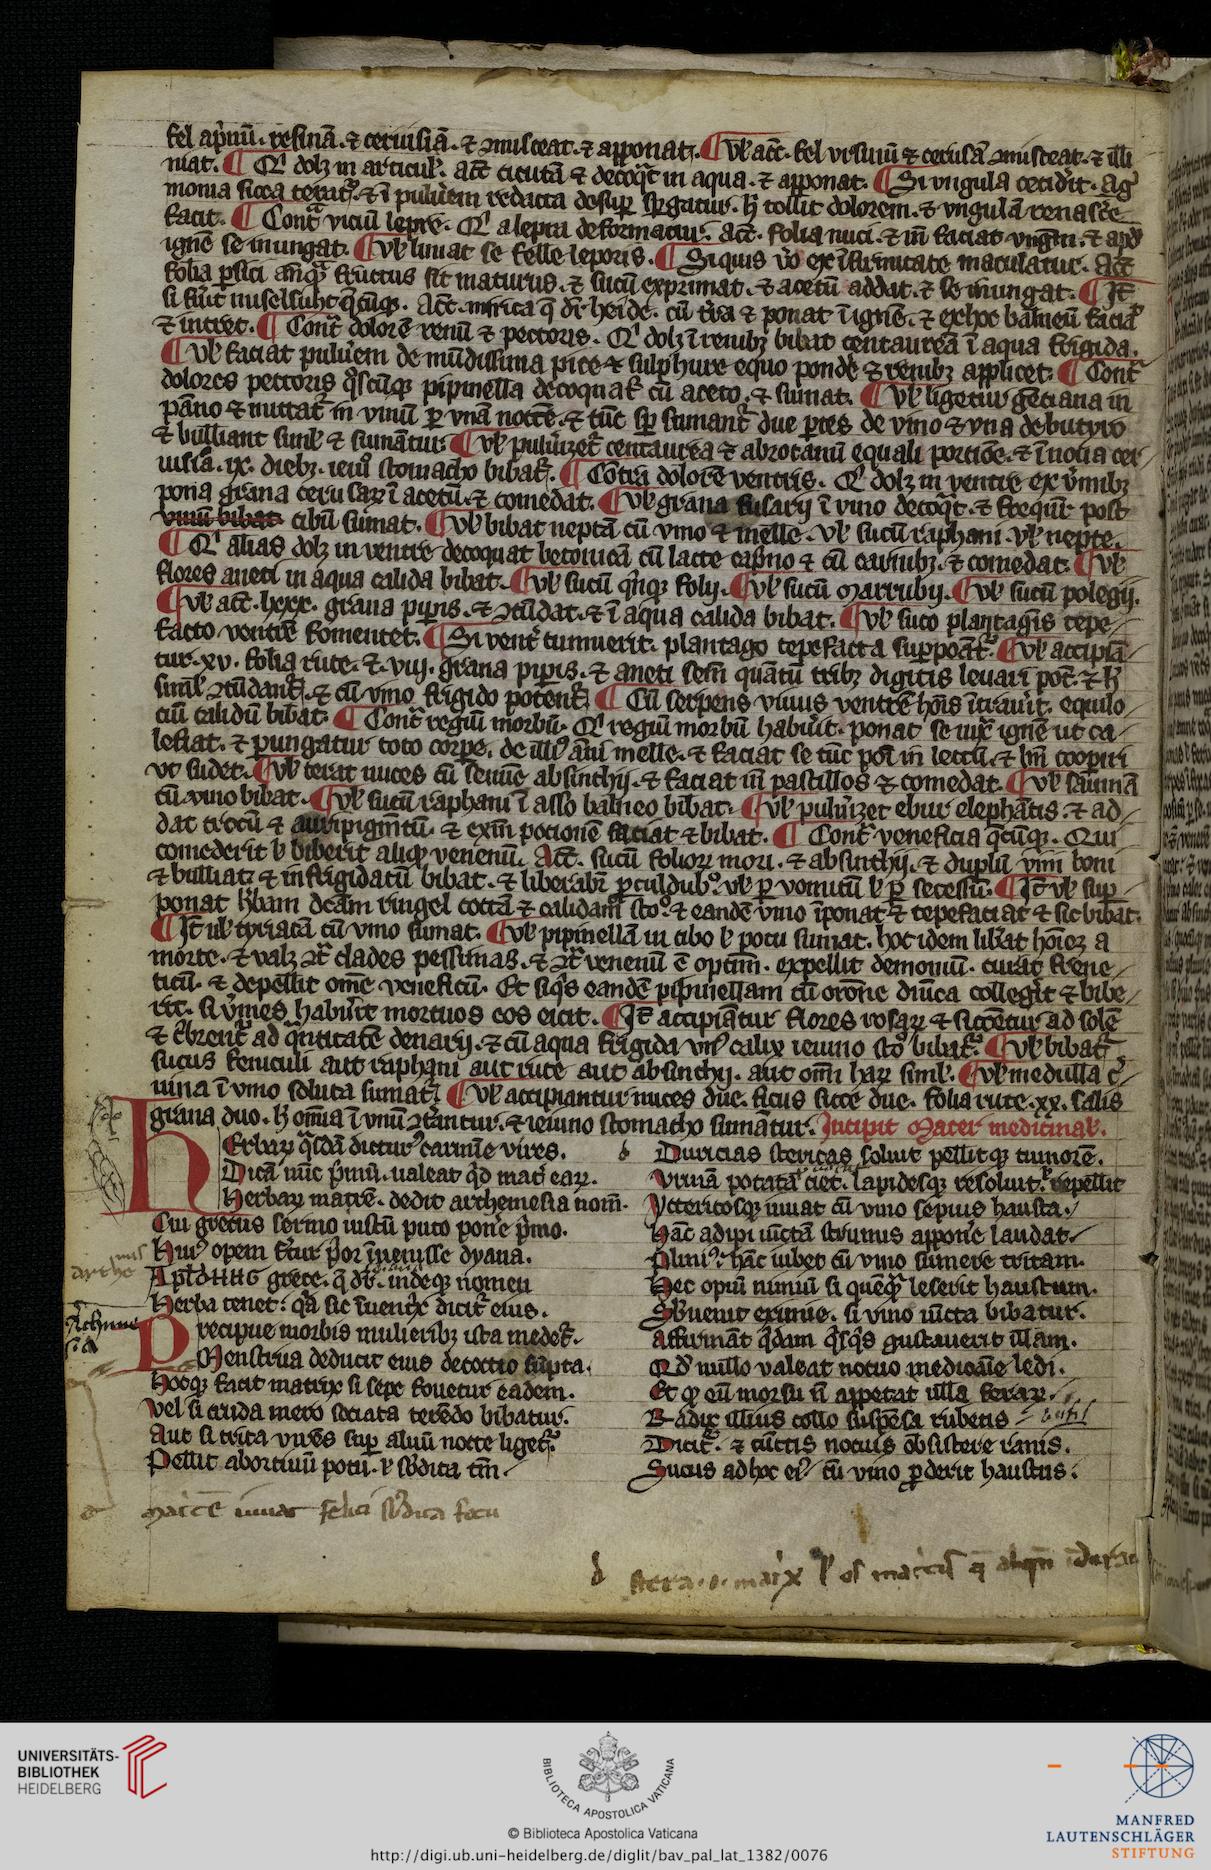 fel apᵢnū. resinā. ⁊ ceruisiā. ⁊ misceat. ⁊ apponat. ¶ Vl' acc̄. fel ursinū ⁊ cerusā misceat. ⁊ illi
niat. ¶ Qⁱ dolꝫ in articul'. acc̄ cicutā ⁊ decoq̄t in aqua. ⁊ apponat. ¶ Si ungula cecid'it. ag'
monia sicca terat'. ⁊ ī puluerem redacta desup̄ sp̄gatur. h̄ tollit dolorem. ⁊ ungulā renasc̄e
facit. ¶ Cont̄ viciū lepre. Qⁱ a lepra deformatur. acc̄. folia nuci. ⁊ in̄ faciat ungm̄. ⁊ apd'
ignē se inungat. ¶ Vl' liniat se felle leporis. ¶ Si quis v'o ex īfirmitate maculatur. acc̄
folia p̄sici anq̄ fructus sit maturus. ⁊ sucū exprimat. ⁊ acetū addat. ⁊ se inungat. ¶ It̄
acc̄. mirica q̄ dr̄ heide. cū t'ra ⁊ ponat ī ignē. ⁊ ex hoc balneū faciat
⁊ intret. ¶ Cont̄ dolorē renū ⁊ pectoris. Qⁱ dolꝫ ī renibꝫ bibat centaureā ī aqua frigida.
¶ Vl' faciat puluerem de mūdissima pice ⁊ sulphure equo ponde' ⁊ renibꝫ applicet. ¶ Cont̄
dolores pectoris q̄scūqꝫ pipinella decoquat' cū aceto. ⁊ sumat. ¶ Vl' ligetur gēciana in
pāno ⁊ mittat' in vinū p̄ unā noctē. ⁊ tūc sp̄ sumant' due p̄tes de vino ⁊ una de butyro
⁊ bulliant simul' ⁊ sumātur. ¶ Vl' pulu'izet' centaurea ⁊ abrotanū equali portiōe. ⁊ ī nolia cer
uisia. ix. diebꝫ. ieiu' stomacho bibat'. ¶ Cōtra dolorē ventris. Qⁱ dolꝫ in ventre ex v'mibꝫ
pona grana cerusaꝝ ī acetū. ⁊ comedat. ¶ Vl' grana fusarij ī vino decoq̄t. ⁊ freque't' post
vinū bibat cibū sumat. ¶ Vl' bibat neptā cū vino ⁊ melle. vl' sucū raphani. vl' nepte.
¶ Qⁱ alias dolꝫ in ventre decoquat betonicā cū lacte cap̄no ⁊ cū carnibꝫ. ⁊ comedat. ¶ Vl'
flores aneti in aqua calida bibat. ¶ Vl' sucū q̄nqꝫ folij. ¶ Vl' sucū marrubij. ¶ Vl' sucū polegij.
¶ Vl' acc̄. lxxx. grana pip̄is. ⁊ ꝯtūdat. ⁊ ī aqua calida bibat. ¶ Vl' suco plantagīs tepe
facto ventrē fomentet. ¶ Si vent' tumuerit. plantago tepefacta sup̄ponat'. ¶ Vl' accipiā
tur. xv. folia rute. ⁊ viij. grana pip̄is. ⁊ aneti sem̄ quātū tribꝫ digitis leuari pot̄. ⁊ h̄
simul' ꝯtūdant'. ⁊ cū vino frigido potent'. ¶ Cū serpens vivus ventrē hoīs ītrau'it. equilo
ciū calidū bibat. ¶ Cont̄ regiū morbū. Qⁱ regiū morbū habu'it. ponat se iux̄ ignē ut ca
lefiat. ⁊ pungatur toto corpe'. de illi' melle. ⁊ faciat se tūc pōi in lectū. ⁊ bn̄ coopiri
ut sudet. ¶ Vl' terat nuces cū semīe absinthij. ⁊ faciat in̄ pastillos ⁊ comedat. ¶ Vl' sauinā
cū vino bibat. ¶ Vl' sucū raphani ī asso balneo bibat. ¶ Vl' pulu'izet ebur elephātis. ⁊ ad
dat crocū ⁊ auripigm̄tū. ⁊ exin̄ potionē faciat ⁊ bibat. ¶ Cont̄ veneficia q̄cūqꝫ. Qui
comederit l' biberit aliq' venenū. Acc̄. sucū folioꝝ mori. ⁊ absinthij. ⁊ duplū vini boni
⁊ bulliat. ⁊ infrigidatū bibat. ⁊ liberabit' p̄culdubꝰ. vl' p̄ vomitū l' p̄ secessū. ¶ It̄ vl' sup̄
ponat h'bam dcām ringel coctā ⁊ calidam stoꝰ. ⁊ eandē vino īponat. ⁊ tepefaciat ⁊ sic bibat.
¶ It̄ ul' tyriacā cū vino sumat. ¶ Vl' pipinellā in cibo l' potu sumat. hoc idem lib'at hoīeꝫ a
morte. ⁊ valꝫ ꝯt̄ clades pessimas. ⁊ ꝯt̄ venenū ē optim̄. expellit demoniū. curat frene
ticū. ⁊ depellit om̄e veneficiū. Et siq̄s eandē pipinellam cū orōne diuīca collegit ⁊ bibe
rit. si v'mes habu'it mortuos eos eicit. ¶ It̄ accipiātur flores rosaꝝ ⁊ siccētur ad solē
⁊ c'brent' ad q̄ntitatē denarij. ⁊ cū aqua frigida un' calix ieiuno stoꝰ bibat'. ¶ Vl' bibat'
sucus feniculi aut raphani aut rute aut absinthij. aut oīm haꝝ simul'. ¶ Vl' medulla c'
uina ī vino soluta sumat'. ¶ Vl' accipiantur nuces due. ficus sicce due. folia rute. xx. salis
grana duo. h̄ omīa ī unū ꝯt'antur. ⁊ ieiuno stomacho sumātur. Incipit Macer medicinal'.
Herbaꝝ q̄sdā dictur' carmīe vires.
Dicā nūc p̄mū. ualeat q̄d mat' eaꝝ.
Herbaꝝ matrē. dedit arthemesia nom̄.
Cui grecus sermo iustū puto pone' p̄mo.
Hui' opem fertur p̄or īuenisse dyana.
grece. q̄ dr̄. indeqꝫ nomen
Herba tenet. q̄a sic īuentx̄ dicit' eius.
Precipue morbis mulieribꝫ ista medet'.
Menstrua deducit eius decoctio sūpta.
Hocqꝫ facit matrix si sepe fouetur eadem.
Vel si cruda mero sociata terēdo bibatur.
Aut si trita virēs sup̄ aluū nocte liget'.
Pellit abortiuū potu. l' sb'dita tm̄.
b Duricias
soluit pellitqꝫ tumorē.
Urinā potata ciet. lapidesqꝫ resoluit. repellit
Yctericosqꝫ iuuat cū vino sepius hausta.
Hāc adipi iūctā strumis appōne laudat.
Pliniꝰ. hāc iubet cū vino sumere tritam.
Hec opiū nimiū si quēq̄ leserit haustum.
Sb'uenit eximie. si vino iūcta bibatur.
Affirmāt q̄dam q̄sq̄s gustauerit illam.
Qd' nullo valeat nocuo medicaīe ledi.
Et qꝫ eū morsu n̄ appetat ulla feraꝝ.
Radix illius collo suspēsa rubetis
Dicit'. ⁊ cūctis nocuis obsistere ranis.
Sucus ad hoc ei' cū vino p̄derit haustus.
arthe
UNIVERSITÄTS-
BIBLIOTHEK
HEIDELBERG
BIBLIOTECA APOSTOLICA VATICANA
© Biblioteca Apostolica Vaticana
http://digi.ub.uni-heidelberg.de/diglit/bav_pal_lat_1382/0076
MANFRED
LAUTENSCHLÄGER
STIFTUNG